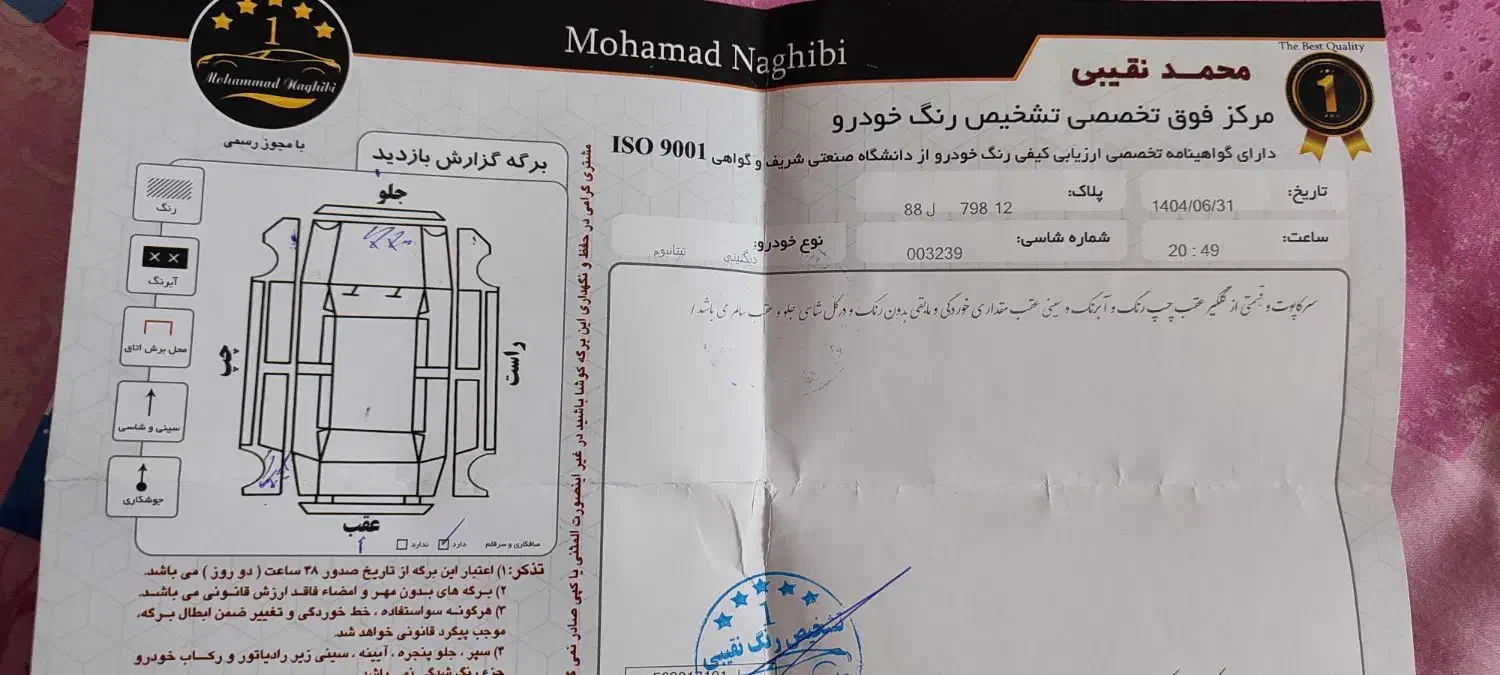 Mohamad Naghibi
The Best Quality
1
محمد نقیبی
1
Mohammad Naghibi
با مجوز رسمی
مرکز فوق تخصصی تشخیص رنگ خودرو
دارای گواهینامه تخصصی ارزیابی کیفی رنگ خودرو از دانشگاه صنعتی شریف و گواهی ISO 9001
تاریخ: 1404/06/31
پلاک: 88 ل 798 12
ساعت: 20 : 49
شماره شاسی: 003239
نوع خودرو: دیگنیتی تیتانیوم
سرکاپوت و قسمتی از گلگیر عقب چپ رنگ و آبرنگ و سینی عقب مقداری خوردگی و مابقی بدون رنگ و در کل شاسی جلو و عقب سالم می باشد /
برگه گزارش بازدید
جلو
رنگ
آبرنگ
محل برش اتاق
سینی و شاسی
جوشکاری
چپ
راست
عقب
صافکاری و سرقلم دارد ندارد
مشتری گرامی در حفظ و نگهداری این برگه کوشا باشید در غیر اینصورت المثنی یا کپی صادر نمی
تذکر: ۱) اعتبار این برگه از تاریخ صدور ۴۸ ساعت ( دو روز ) می باشد.
۲) برگه های بدون مهر و امضاء فاقد ارزش قانونی می باشد.
۳) هرگونه سواستفاده ، خط خوردگی و تغییر ضمن ابطال برگه،
موجب پیگرد قانونی خواهد شد.
۴) سپر ، جلو پنجره ، آیینه ، سینی زیر رادیاتور و رکاب خودرو
جزء رنگ شدگی نمی باشد
1
تشخیص رنگ نقیبی